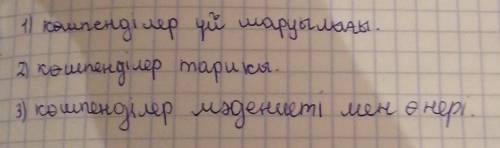 1) көшпенділер үй шаруашылығы.
2) көшпенділер тарихы.
3) көшпенділер мәдениеті мен өнері.